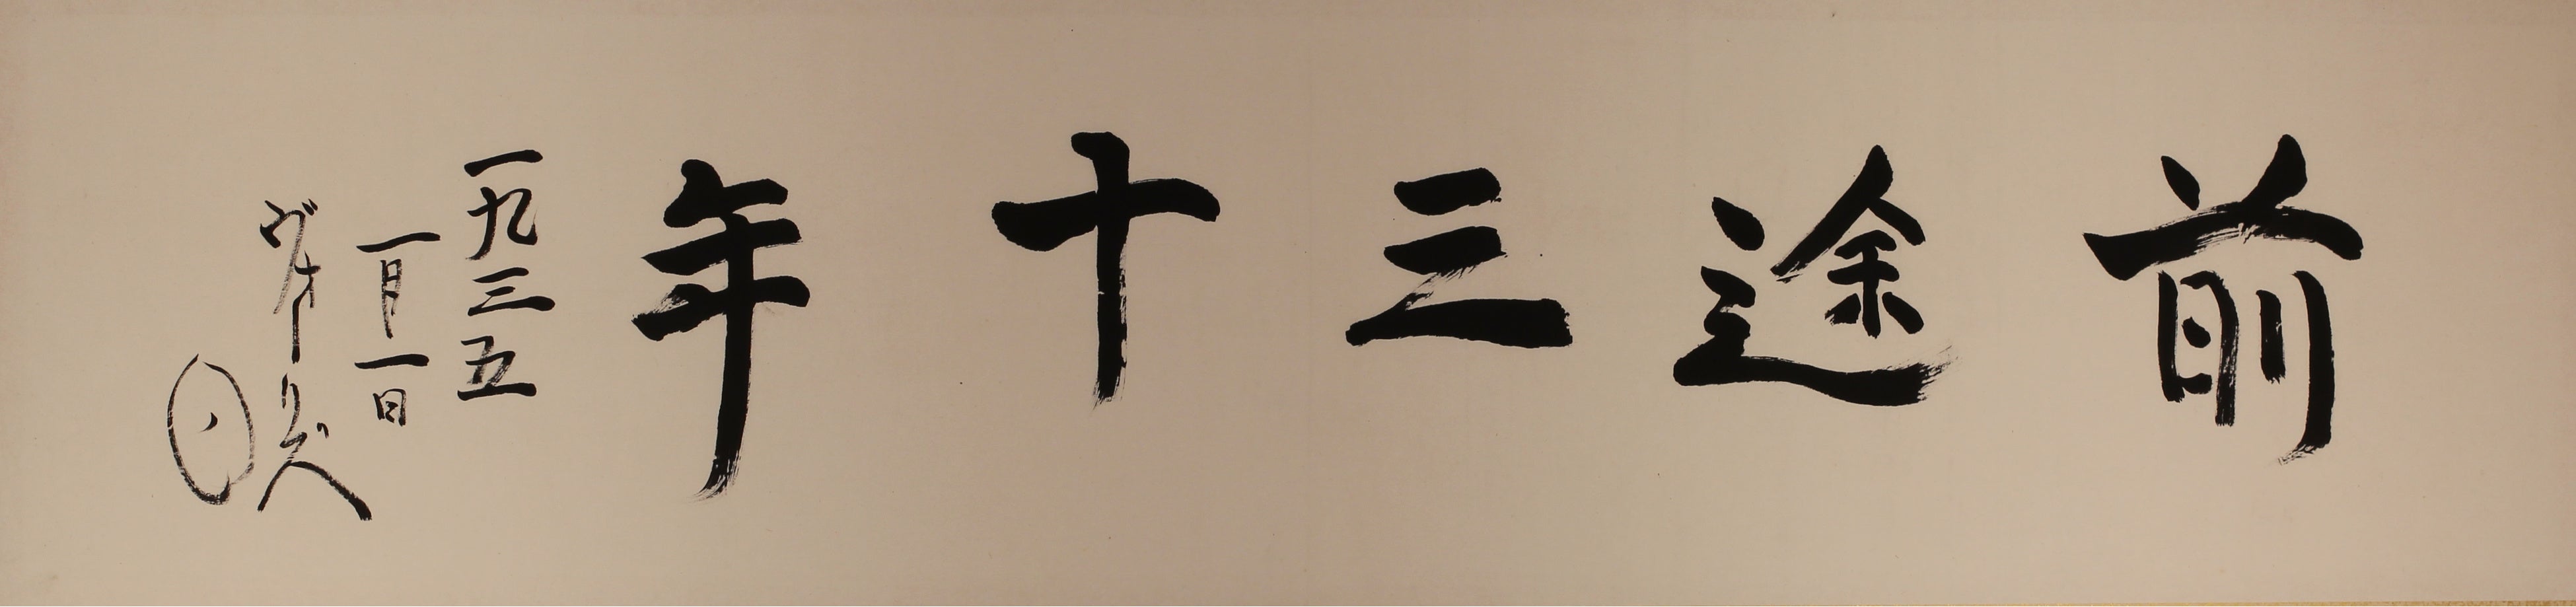 前途三十年
一九三五
一月一日
ヴォーリズ